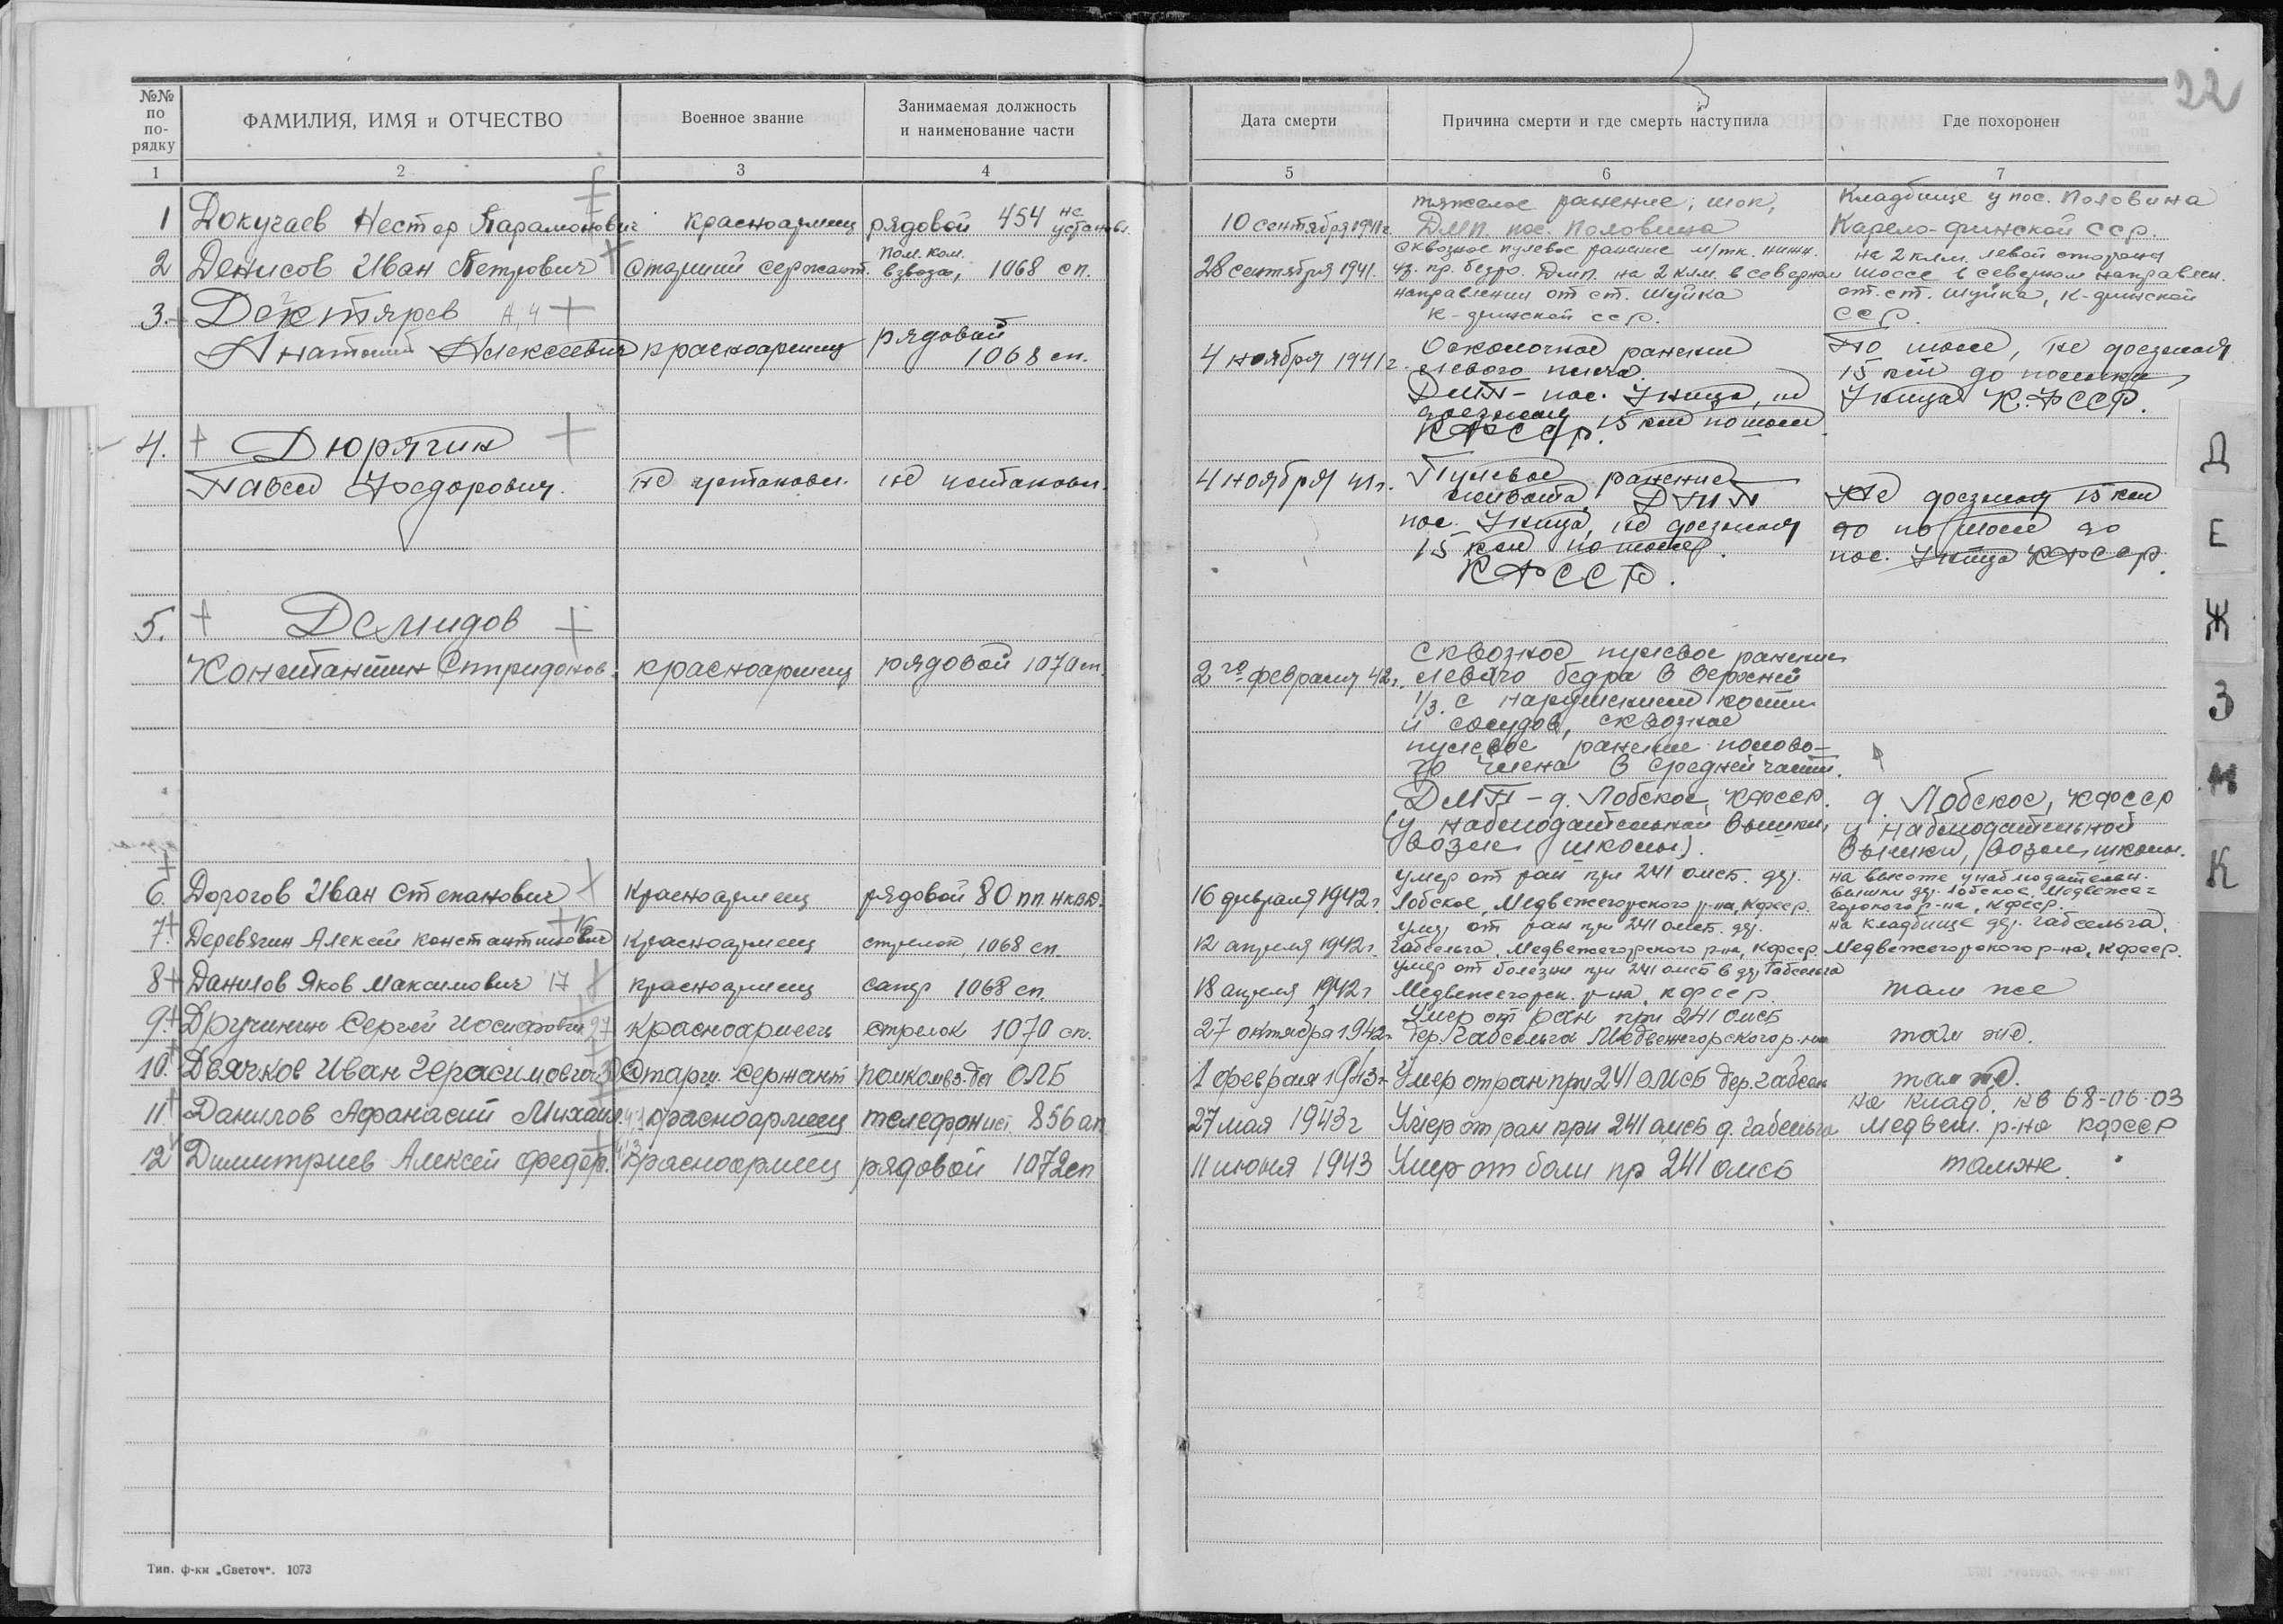 22
№№ по по-рядку
ФАМИЛИЯ, ИМЯ и ОТЧЕСТВО
Военное звание
Занимаемая должность и наименование части
Дата смерти
Причина смерти и где смерть наступила
Где похоронен
1 2 3 4 5 6 7
1 Докучаев Нестор Парамонович красноармеец рядовой 454 не установл.
10 сентября 1941г.
тяжелое ранение, шок,
ДМП. пос. Половина
Кладбище у пос. Половина
Карело-финской ССР.
2 Денисов Иван Петрович Старший сержант. Пом. ком. взвода, 1068 сп.
28 сентября 1941.
Сквозное пулевое ранение м/тк. нижн.
⅓. пр. бедро. ДМП. на 2 клм. в северном
направлении от ст. Шуйка
К-финской ССР.
на 2 клм. левой стороны
шоссе в северном направлен.
от ст. Шуйка, К-финской
ССР.
3. Дегтярев
Анатолий Алексеевич красноармеец рядовой 1068 сп.
4 ноября 1941г.
Осколочное ранение
левого плеча.
ДМП - пос. Уница, не
доезжая 15 км по шоссе
КФССР.
По шоссе, не доезжая
15 км до поселка
Уница К.ФССР.
4. Дюрягин
Павел Федорович. не установл. не установл.
4 ноября 41г.
Пулевое ранение
живота. ДМП
пос. Уница, не доезжая
15 км по шоссе.
КФССР.
Не доезжая 15 км
до по шоссе до
пос. Уница КФССР.
5. Демидов
Константин Спиридонов. красноармеец рядовой 1070 сп.
2го февраля 42г.
Сквозное пулевое ранение
левого бедра в верхней
1/3. с нарушением кости
и сосудов, сквозное
пулевое ранение полово-
го члена в средней части.
ДМП - д. Лобское, КФССР.
(у наблюдательной вышки,
возле школы).
д. Лобское, КФССР
у наблюдательной
вышки, возле школы.
6. Дорогов Иван Степанович красноармеец рядовой 80 пп. НКВД.
16 февраля 1942г.
умер от ран при 241 омсб. дер.
Лобское, Медвежегорского р-на, КФССР.
на высоте у наблюдательн.
вышки дер. Лобское, Медвеже-
горского р-на, КФССР.
7 Деревягин Алексей Константинович 16 красноармеец стрелок, 1068 сп.
12 апреля 1942г.
умер от ран при 241 омсб. дер.
Габсельга, Медвежегорского р-на, КФССР.
на кладбище дер. Габсельга,
Медвежегорского р-на, КФССР.
8 Данилов Яков Максимович 17 красноармеец сапер 1068 сп.
18 апреля 1942г
умер от болезни при 241 омсб в дер. Габсельга
Медвежегорск. р-на, КФССР.
там же
9. Дружинин Сергей Иосифович 27 красноармеец стрелок 1070 сп.
27 октября 1942г.
Умер от ран при 241 омсб
дер. Габсельга Медвежегорского р-на
там же.
10. Двячков Иван Герасимович Старш. сержант помкомвз-да ОЛБ
1 февраля 1943г
Умер от ран при 241 ОМСБ дер. Габсел
там же.
11 Данилов Афанасий Михаил. красноармеец телефонист. 856 ап
27 мая 1943г
Умер от ран при 241 омсб д. Габсельга
на кладб. кв 68-06-03
Медвеж. р-на КФССР
12 Димитриев Алексей Федор. красноармеец рядовой 1072сп
11 июня 1943
Умер от боли пр 241 омсб
там же.
Д
Е
Ж
З
И
К
Тип. ф-ки „Светоч“. 1073